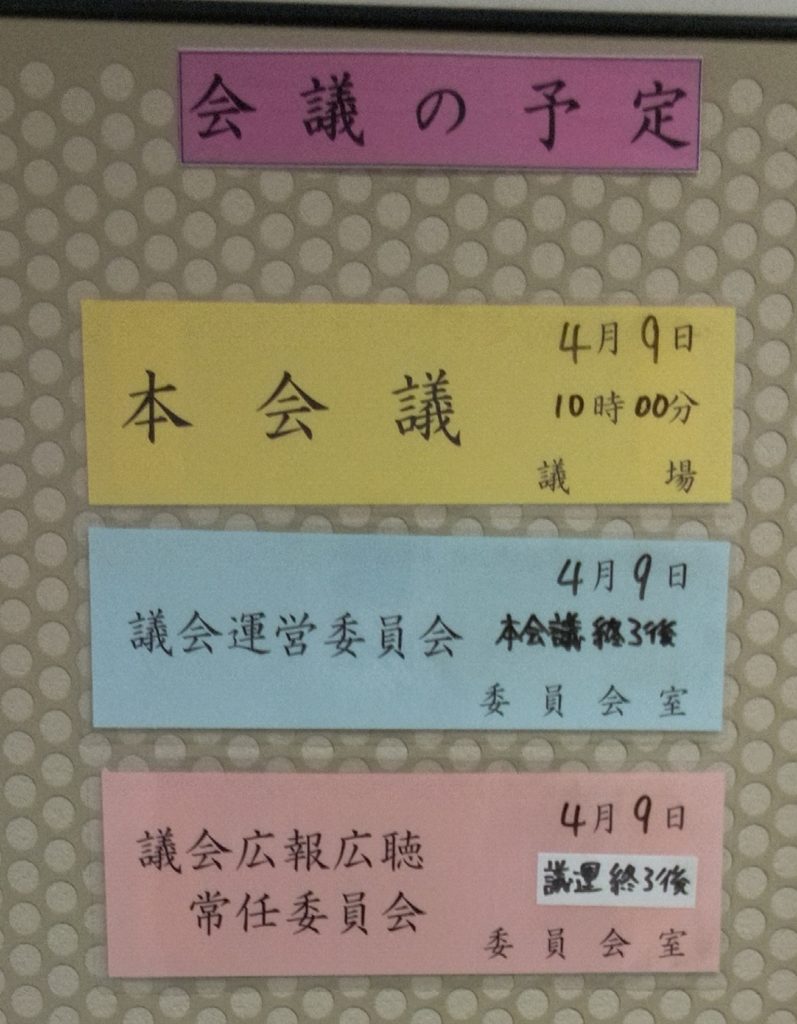 会議の予定
本会議
4月9日
10時00分
議場
議会運営委員会
4月9日
本会議終了後
委員会室
議会広報広聴
常任委員会
4月9日
議運終了後
委員会室